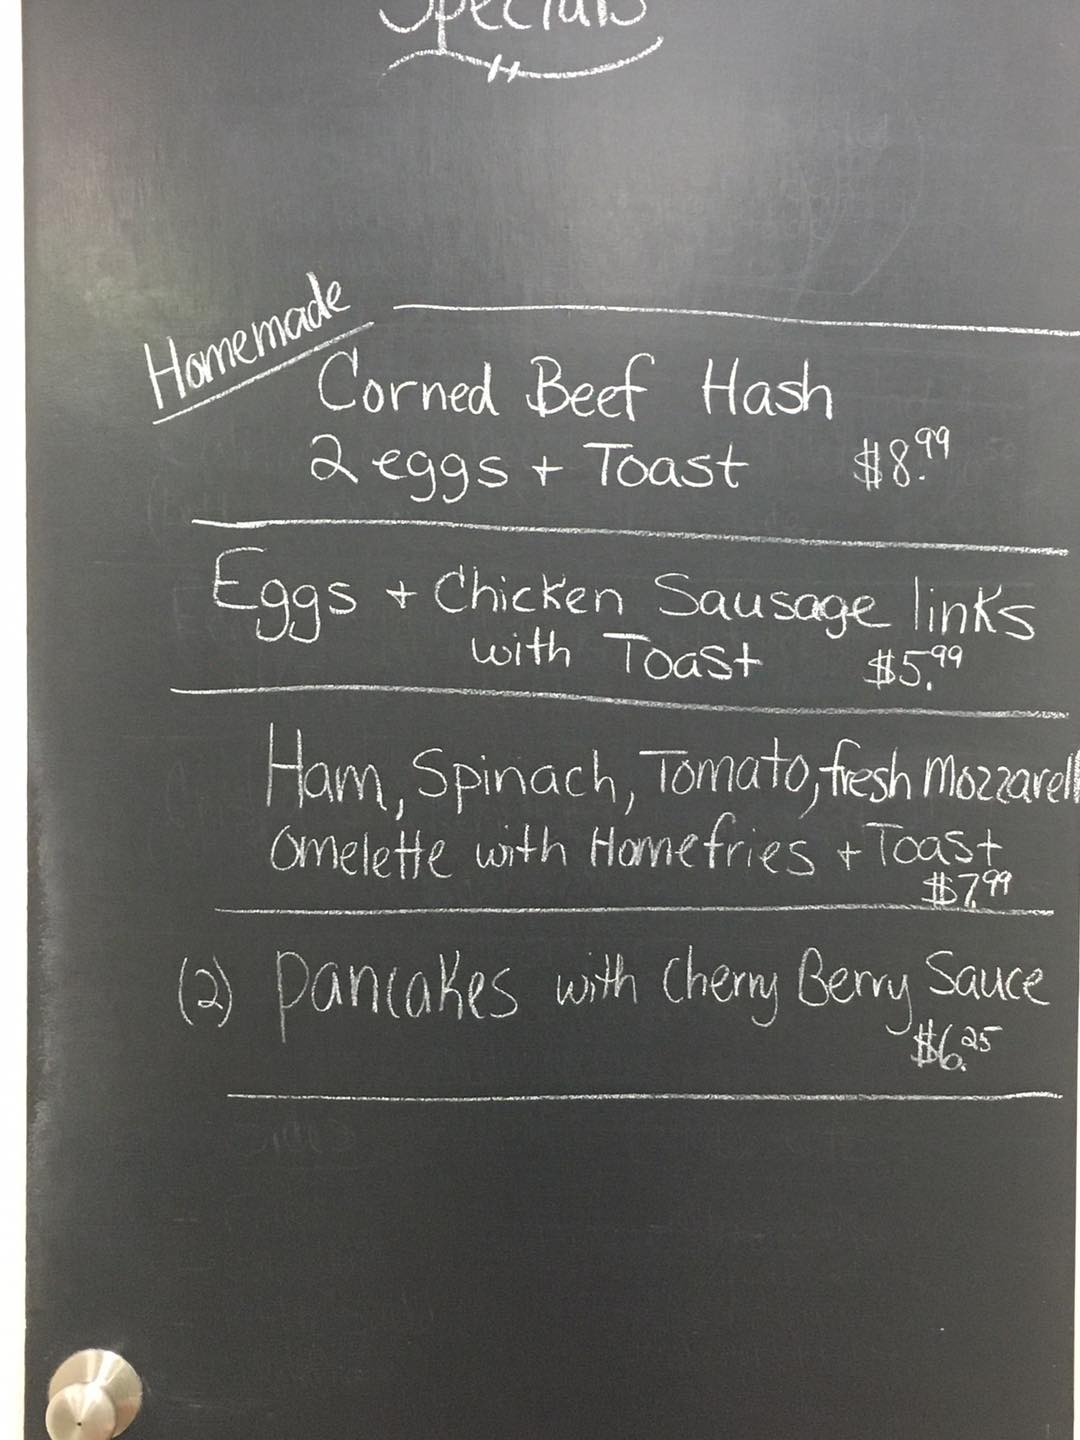 Specials
Homemade
Corned Beef Hash
2 eggs + Toast $8.99
Eggs + Chicken Sausage links
with Toast $5.99
Ham, Spinach, Tomato, fresh Mozzarell
Omelette with Homefries + Toast
$7.99
(2) Pancakes with Cherry Berry Sauce
$6.25